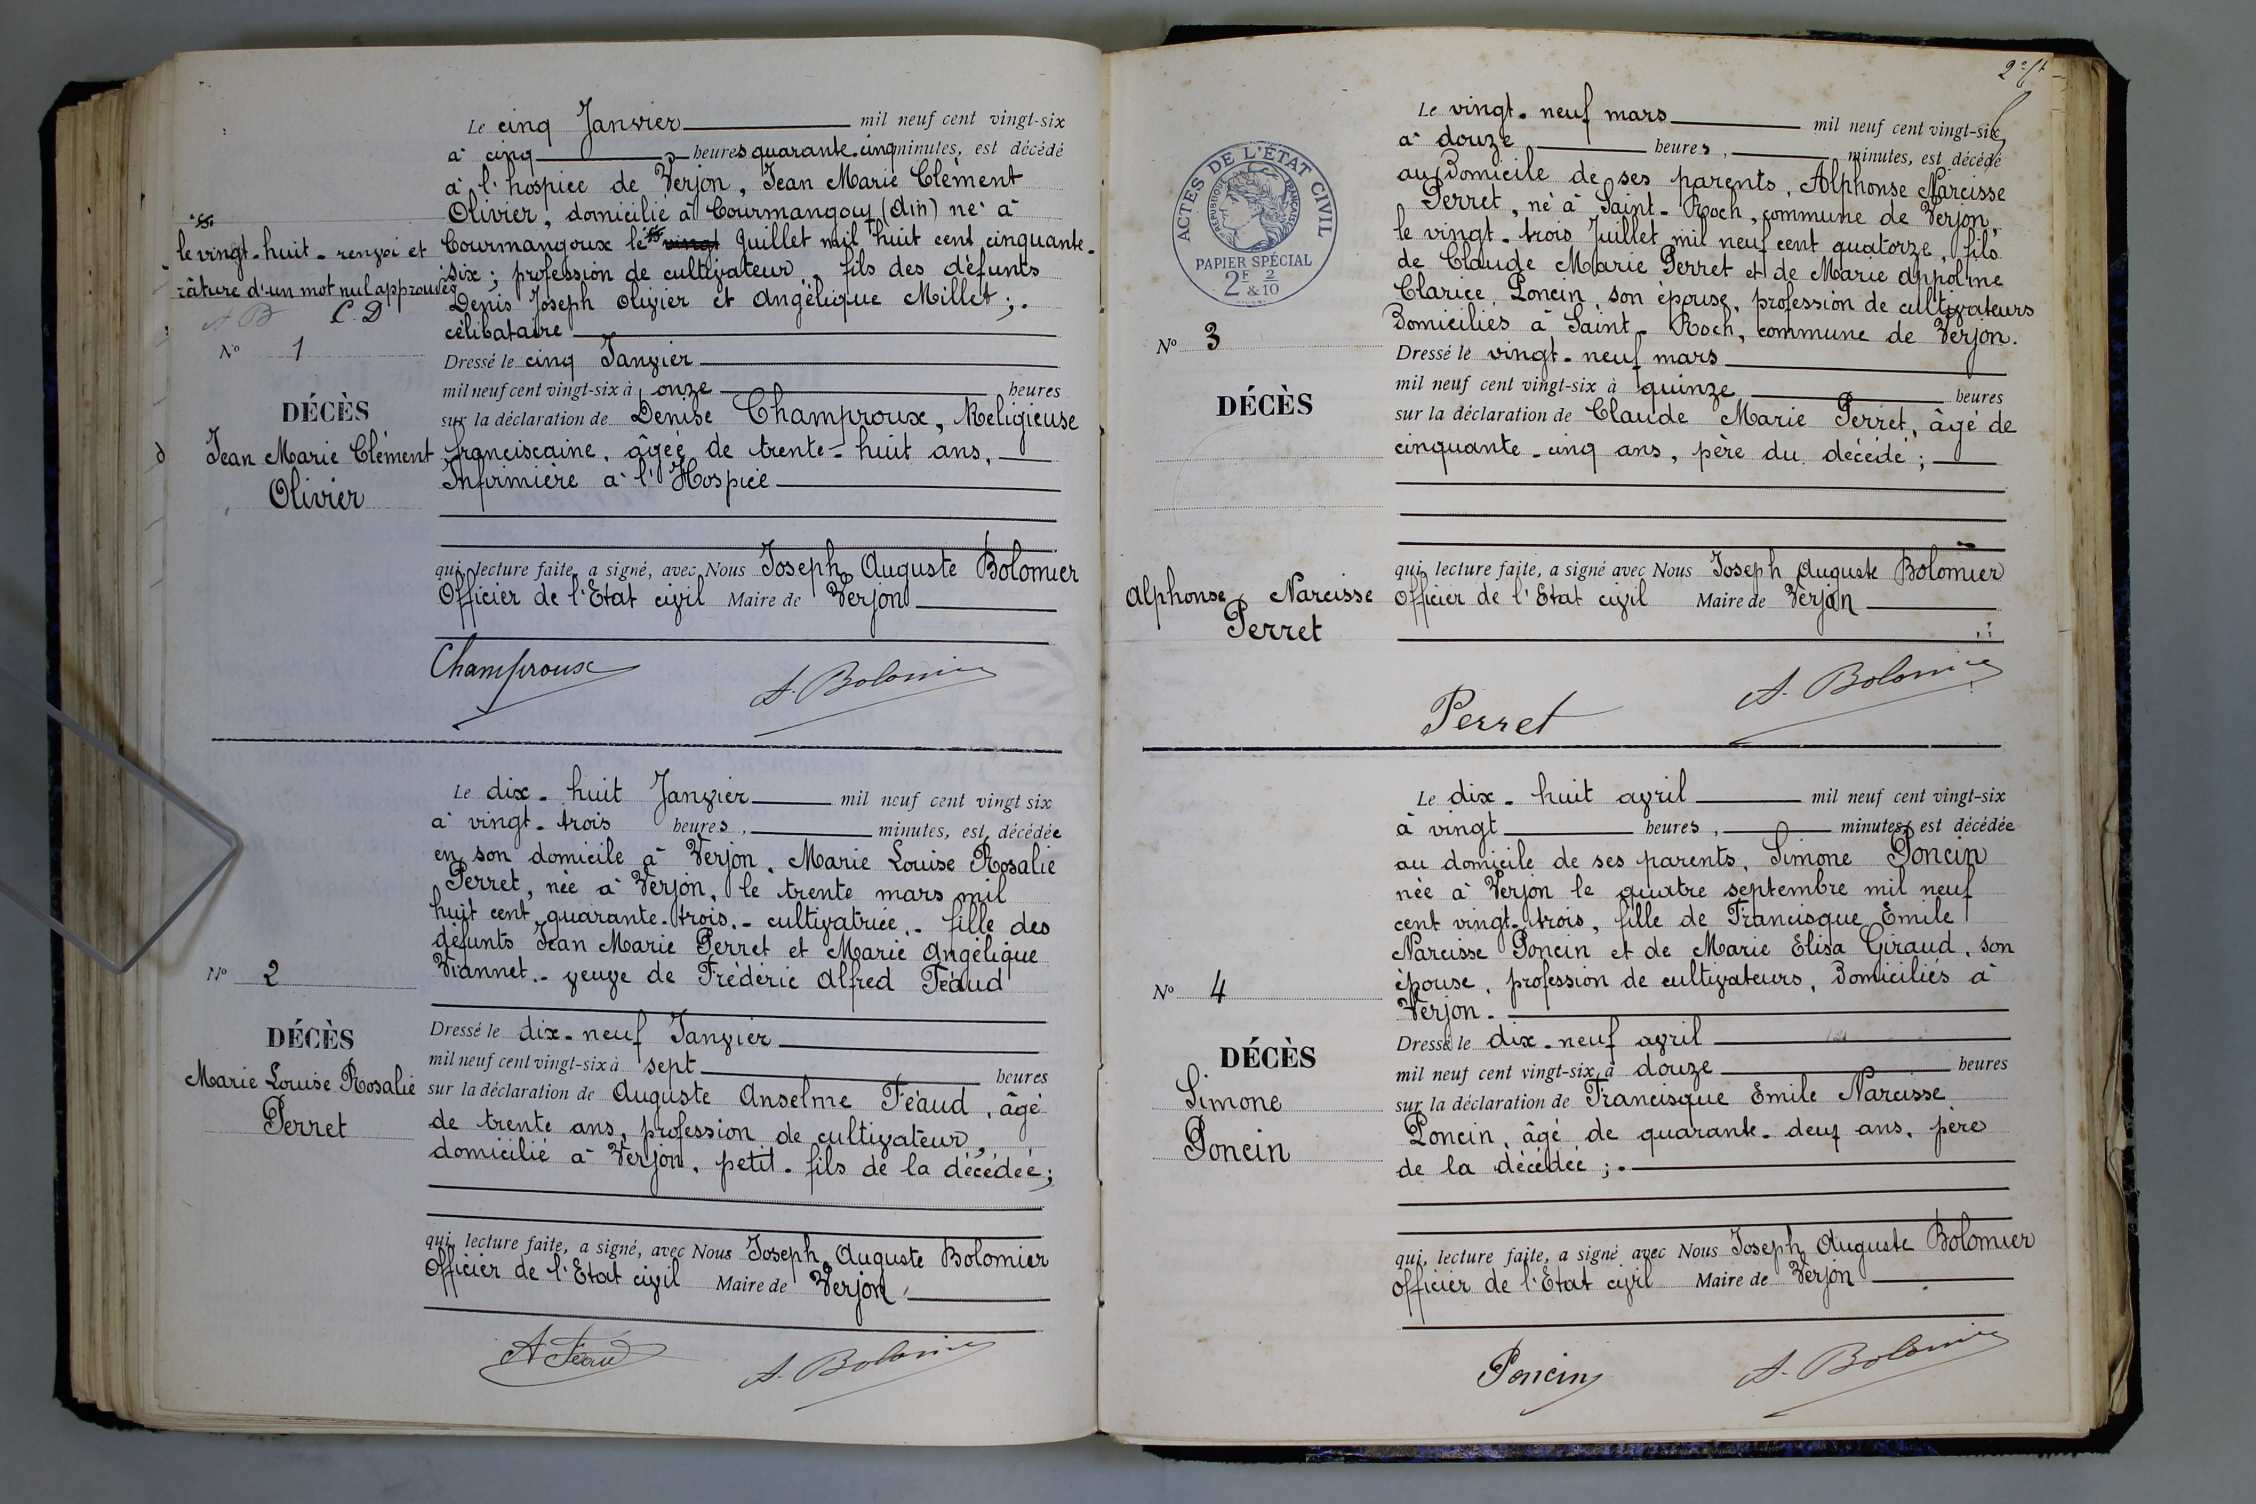 Le cinq Janvier mil neuf cent vingt-six
à cinq heures quarante-cinq minutes, est décédé
à l'hospice de Verjon, Jean Marie Clément
Olivier, domicilié à Courmangoux (Ain) né à
Courmangoux le vingt Juillet mil huit cent cinquante-
six ; profession de cultivateur, fils des défunts
Denis Joseph Olivier et Angélique Millet ;.
célibataire
le vingt-huit - renvoi et
râture d'un mot nul approuvés
C. D
Nº 1
DÉCÈS
Jean Marie Clément
Olivier
Dressé le cinq Janvier
mil neuf cent vingt-six à onze heures
sur la déclaration de Denise Champroux, Religieuse
franciscaine, âgée de trente-huit ans,
Infirmière à l'Hospice
qui, lecture faite, a signé, avec Nous Joseph Auguste Bolomier
Officier de l'Etat civil Maire de Verjon
Champroux
A. Bolomier
Le dix-huit Janvier mil neuf cent vingt six
à vingt-trois heures, minutes, est décédée
en son domicile à Verjon, Marie Louise Rosalie
Perret, née à Verjon, le trente mars mil
huit cent quarante-trois.- cultivatrice.- fille des
défunts Jean Marie Perret et Marie Angélique
Viannet.- veuve de Fréderic Alfred Féaud
Nº 2
DÉCÈS
Marie Louise Rosalie
Perret
Dressé le dix-neuf Janvier
mil neuf cent vingt-six à sept heures
sur la déclaration de Auguste Anselme Féaud, âgé
de trente ans, profession de cultivateur,
domicilié à Verjon, petit-fils de la décédée ;
qui, lecture faite, a signé, avec Nous Joseph Auguste Bolomier
Officier de l'Etat civil Maire de Verjon
A Féaud
A. Bolomier
ACTES DE L'ÉTAT CIVIL
RÉPUBLIQUE FRANÇAISE
PAPIER SPÉCIAL
2F & 2/10
Le vingt-neuf mars mil neuf cent vingt-six
à douze heures, minutes, est décédé
au Domicile de ses parents, Alphonse Narcisse
Perret, né à Saint-Roch, commune de Verjon,
le vingt-trois Juillet mil neuf cent quatorze, fils
de Claude Marie Perret et de Marie Appoline
Clarice Poncin, son épouse, profession de cultivateurs
Domiciliés à Saint-Roch, commune de Verjon.
Nº 3
DÉCÈS
Alphonse Narcisse
Perret
Dressé le vingt-neuf mars
mil neuf cent vingt-six à quinze heures
sur la déclaration de Claude Marie Perret, âgé de
cinquante-cinq ans, père du décédé ;
qui, lecture faite, a signé avec Nous Joseph Auguste Bolomier
Officier de l'Etat civil Maire de Verjon
Perret
A. Bolomier
Le dix-huit avril mil neuf cent vingt-six
à vingt heures, minutes, est décédée
au domicile de ses parents, Simone Poncin
née à Verjon le quatre septembre mil neuf
cent vingt-trois, fille de Francisque Emile
Narcisse Poncin et de Marie Elisa Giraud, son
épouse, profession de cultivateurs, Domiciliés à
Verjon.
Nº 4
DÉCÈS
Simone
Poncin
Dressé le dix-neuf avril
mil neuf cent vingt-six à douze heures
sur la déclaration de Francisque Emile Narcisse
Poncin, âgé de quarante-deux ans, père
de la décédée ;.
qui, lecture faite, a signé avec Nous Joseph Auguste Bolomier
Officier de l'Etat civil Maire de Verjon
Poncin
A. Bolomier